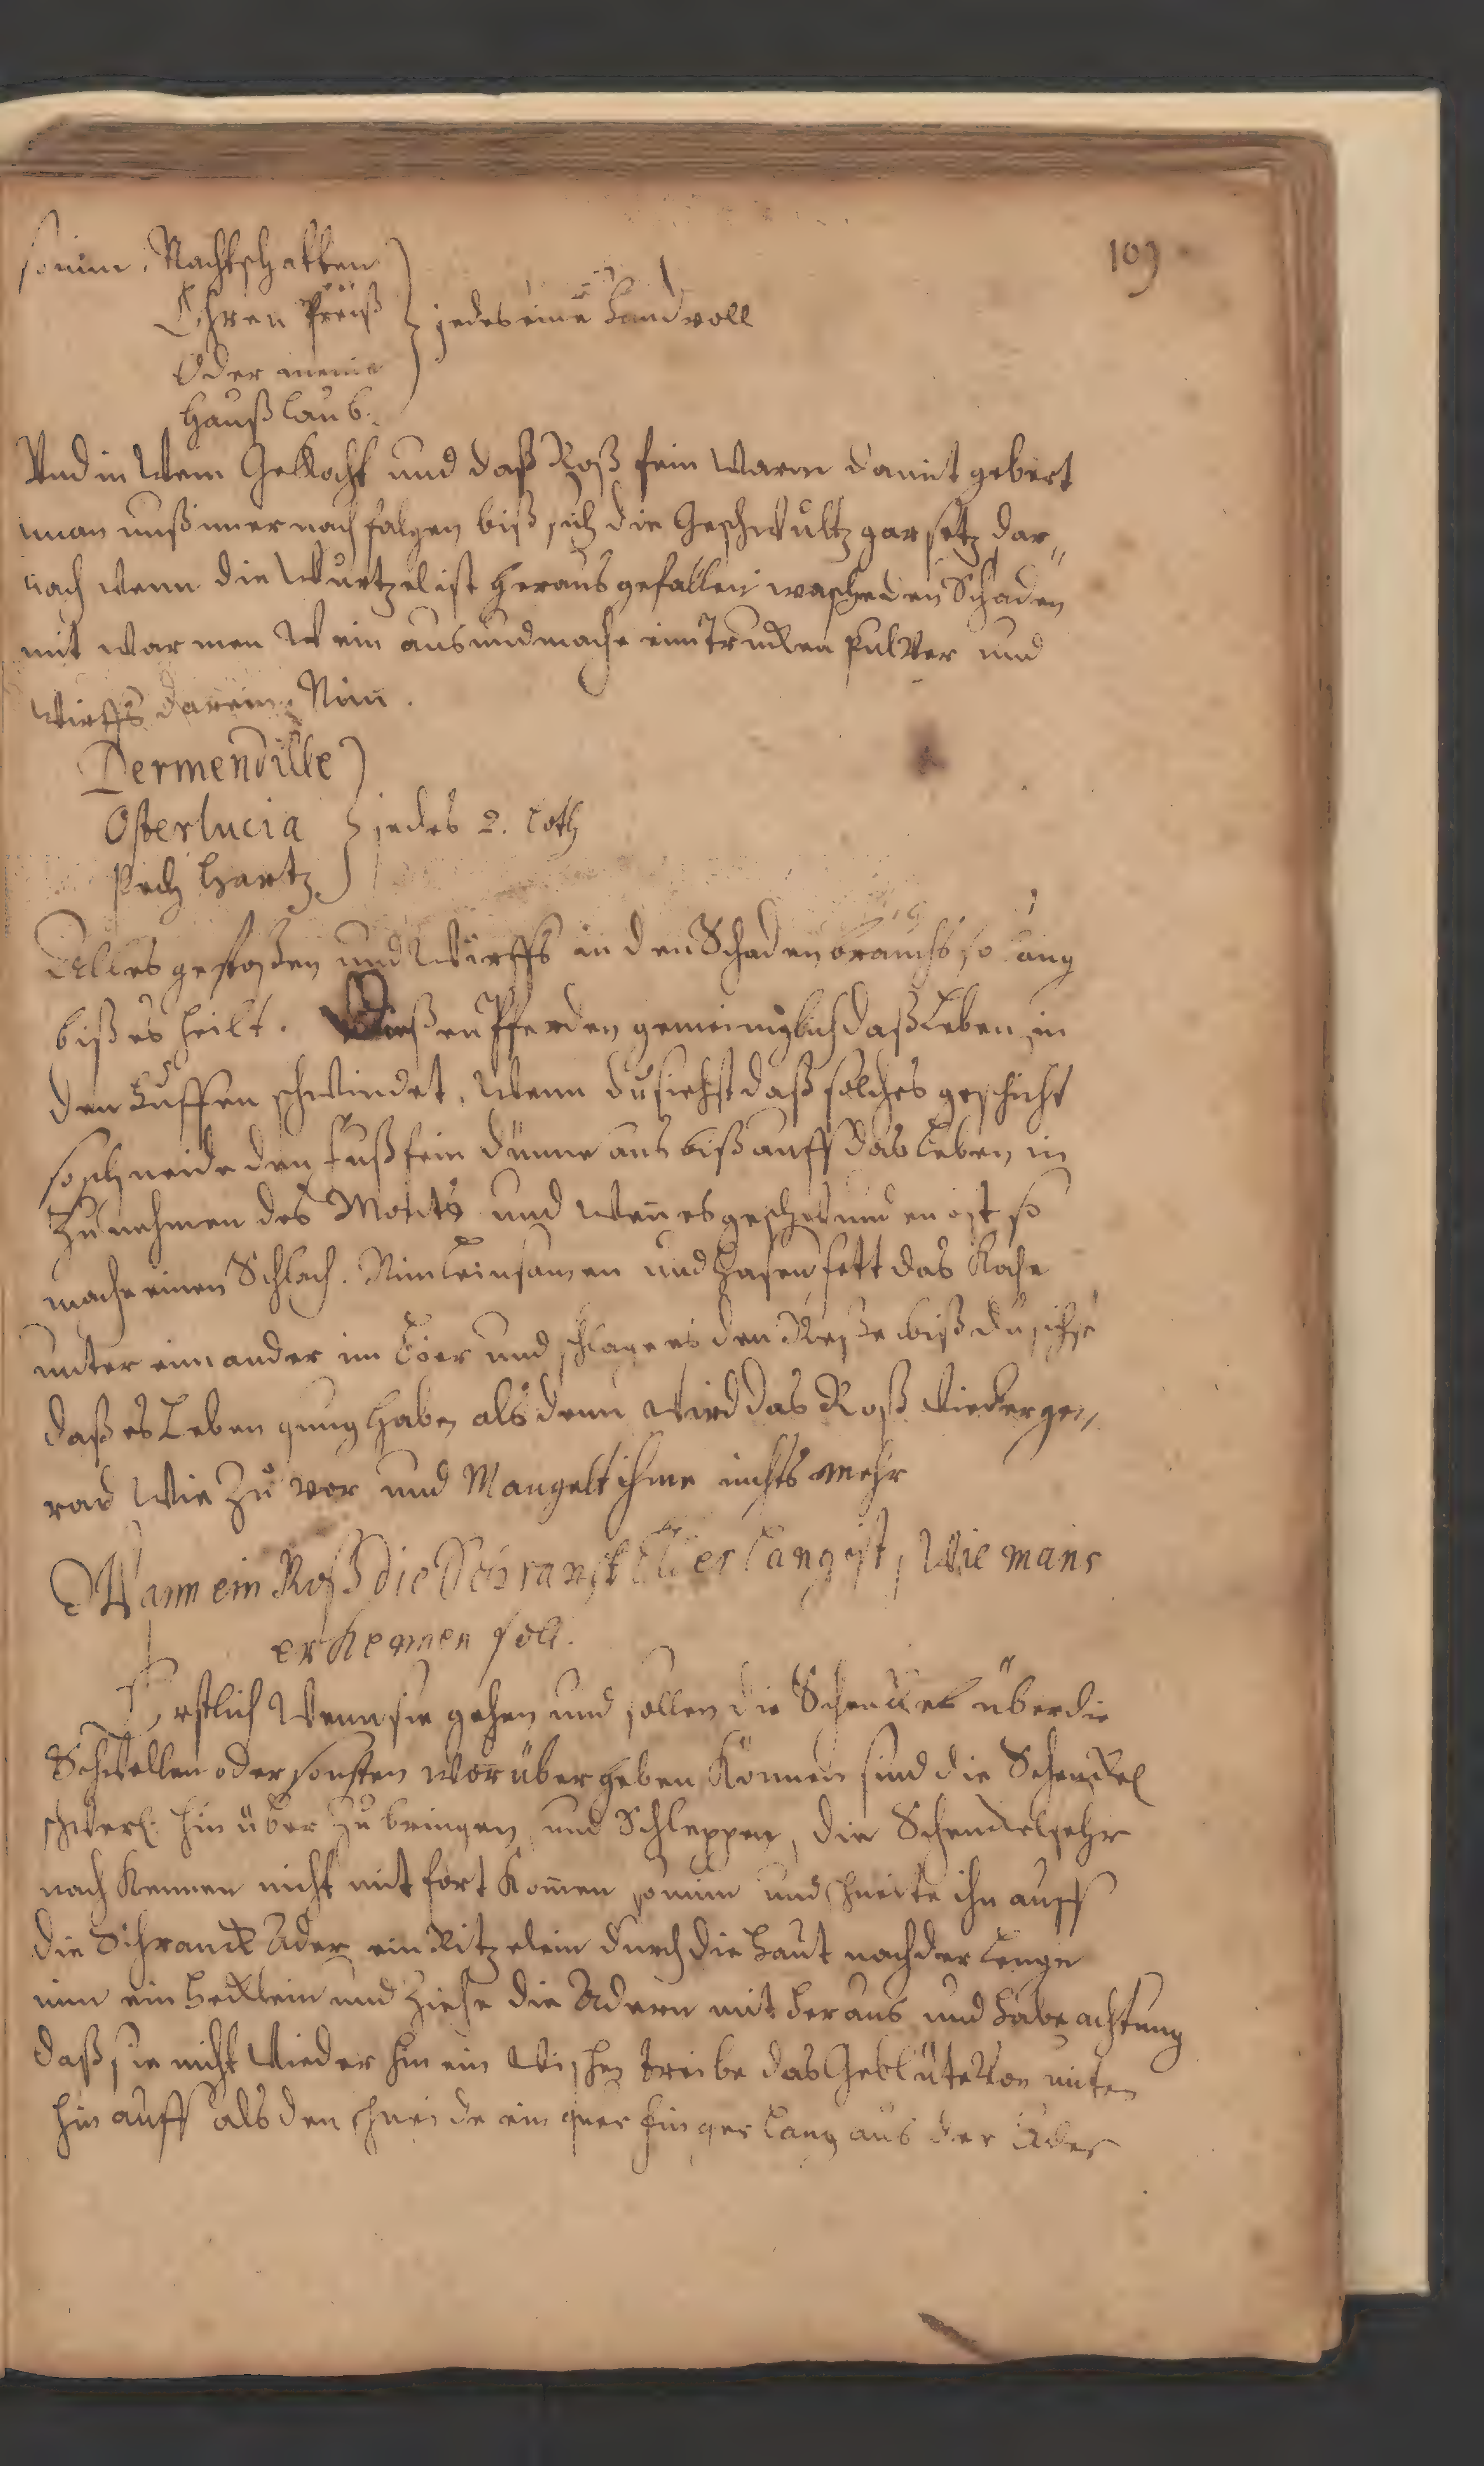 109
so nim. Nachtschatten
Ehren Preiß } jedes eine Handvoll
Oder menie
Haußlaub.
Vnd in Wein Gekocht und daß Roß fein warm damit gebeet
man muß imer nach folgen biß sich die Geschwultz gar setz dar„
nach wenn die Wurtzel ist heraus gefallen wasche den Schaden
mit warmen Wein aus und mache ein Trucken Pulver und
wirffs darein, Nim.
Dermendille
Osterlucia } jedes 2. Loth
Pech Hartz
Alles gestoßen und Wirffs in den Schaden brauchs so lang
biß es heilt. Dießen Pferden gemeiniglich daß Leben in
den Fuffen schwindet, Wenn du siehst daß solches geschicht
so schneide den Fuß fein dünne aus biß auff das Leben, in
Zunehmen des Monts und wen es geschwunden ist so
mache einen Schlach. Nim Leinsamen und Hasen fett das Koche
unter einander im Bier und schlage es den Roße biß du sihst
daß es Leben gnug habe, als denn wird das Roß wieder ge„
rad wie Zu vor und Mangelt ihme nichts mehr
Wann ein Roß die Schranck Ader lang ist, wie mans
erkennen soll.
Erstlich Wenn sie gehen und sollen die Schenckel über die
Schwellen oder sonsten worüber heben Können sind die Schenckel
schwerl. hin über Zu bringen, und Schleppen, die Schenckel sehr
nach Kennen nicht mit fort Komen so nim und schneite ihn auff
die Schranck Ader ein Ritzelein durch die Haut nach der Lenge
nim ein Hecklein und Ziehe die Adern mit heraus und habe achtung
daß sie nicht wieder hin ein wische, treibe das Geblüte von unten
hin auff als den schneide ein quer finger lang aus der Ader